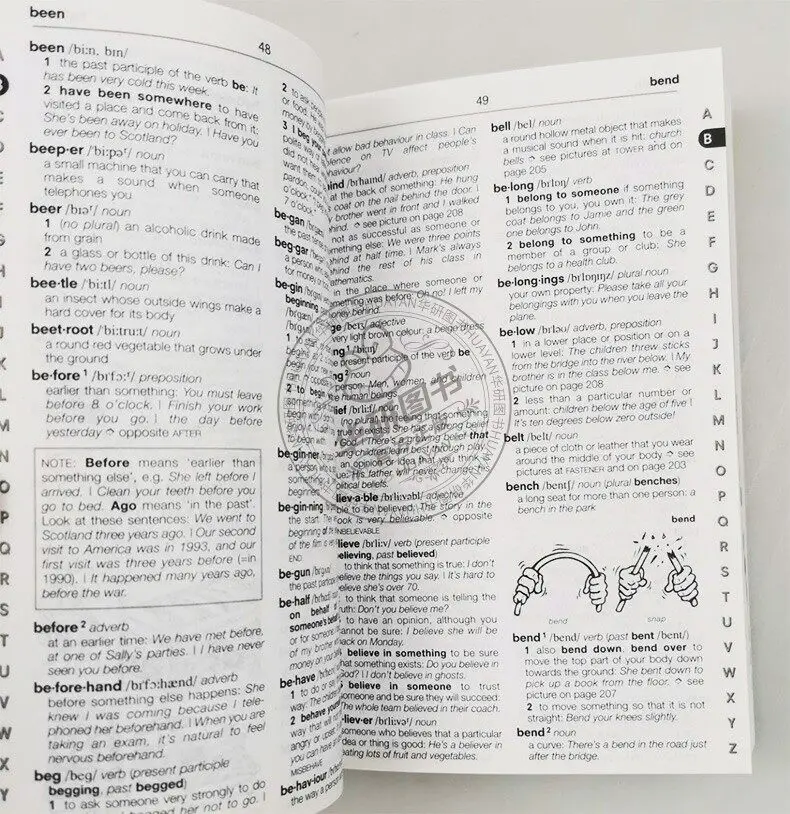 been
48
been /biːn, bɪn/
1 the past participle of the verb be: It
has been very cold this week.
2 have been somewhere to have
visited a place and come back from it:
She's been away on holiday. | Have you
ever been to Scotland?
beep·er /ˈbiːpəʳ/ noun
a small machine that you can carry that
makes a sound when someone
telephones you
beer /bɪəʳ/ noun
1 (no plural) an alcoholic drink made
from grain
2 a glass or bottle of this drink: Can I
have two beers, please?
bee·tle /ˈbiːtl/ noun
an insect whose outside wings make a
hard cover for its body
beet·root /ˈbiːtruːt/ noun
a round red vegetable that grows under
the ground
be·fore¹ /bɪˈfɔːʳ/ preposition
earlier than something: You must leave
before 8 o'clock. | Finish your work
before you go. | the day before
yesterday ⇨ opposite AFTER
NOTE: Before means 'earlier than
something else', e.g. She left before I
arrived. | Clean your teeth before you
go to bed. Ago means 'in the past'.
Look at these sentences: We went to
Scotland three years ago. | Our second
visit to America was in 1993, and our
first visit was three years before (=in
1990). | It happened many years ago,
before the war.
before² adverb
at an earlier time: We have met before,
at one of Sally's parties. | I have never
seen you before.
be·fore·hand /bɪˈfɔːhænd/ adverb
before something else happens: She
knew I was coming because I tele-
phoned her beforehand. | When you are
taking an exam, it's natural to feel
nervous beforehand.
beg /beg/ verb (present participle
begging, past begged)
1 to ask someone very strongly to do
her not to go. |
2 to ask
or food: He
money by
3 I beg your
polite way
did not
want
pardon,
o'clock
7 o'clock.'
be·gan
the past
beg·gar
a person
for money or
be·gin
beginning
began
begun
1 to
begins at
begin your
ran
2 to begin
begins
enjoy
be·gin·ner
a person who
something
beginners
be·gin·ning
the start: The
beginning of the
of the film is
END
be·gun
the past participle
be·half
on behalf
someone's behalf
or for someone
of my brother
money on your
be·have
1 to do or
way: The children
2 behave yourself
way that will
angry or upset
you can have
MISBEHAVE
be·hav·iour
the way a person
49
bend
allow bad behaviour in class. | Can
violence on TV affect people's
behaviour?
hind /bɪˈhaɪnd/ adverb, preposition
at the back of something: He hung
coat on the nail behind the door. |
brother went in front and I walked
hind. ⇨ see picture on page 208
not as successful as someone or
something else: We were three points
behind at half time. | Mark's always
behind the rest of his class in
mathematics.
in the place where someone or
something was before: Oh no! I left my
money behind.
ge /beɪʒ/ adjective
very light brown colour: a beige dress
ing¹ /ˈbiːɪŋ/
the present participle of the verb be
ing² noun
person: Men, women, and children
are human beings.
lief /bɪˈliːf/ noun
(no plural) the feeling that something
is true or exists: She has a strong belief
in God. | There's a growing belief that
young children learn best through play.
an opinion or idea that you think is
true: His father will never change his
political beliefs.
liev·a·ble /bɪˈliːvəbl/ adjective
able to be believed: The story in the
book is very believable. ⇨ opposite
UNBELIEVABLE
lieve /bɪˈliːv/ verb (present participle
believing, past believed)
to think that something is true: I don't
believe the things you say. | It's hard to
believe she's over 70.
to think that someone is telling the
truth: Don't you believe me?
to have an opinion, although you
cannot be sure: I believe she will be
back on Monday.
believe in something to be sure
that something exists: Do you believe in
God? | I don't believe in ghosts.
believe in someone to trust
someone and be sure they will succeed:
The whole team believed in their coach.
liev·er /bɪˈliːvəʳ/ noun
someone who believes that a particular
idea or thing is good: He's a believer in
eating lots of fruit and vegetables.
bell /bel/ noun
a round hollow metal object that makes
a musical sound when it is hit: church
bells ⇨ see pictures at TOWER and on
page 205
be·long /bɪˈlɒŋ/ verb
1 belong to someone if something
belongs to you, you own it: The grey
coat belongs to Jamie and the green
one belongs to John.
2 belong to something to be a
member of a group or club: She
belongs to a health club.
be·long·ings /bɪˈlɒŋɪŋz/ plural noun
your own property: Please take all your
belongings with you when you leave the
plane.
be·low /bɪˈləʊ/ adverb, preposition
1 in a lower place or position or on a
lower level: The children threw sticks
from the bridge into the river below. | My
brother is in the class below me. ⇨ see
picture on page 208
2 less than a particular number or
amount: children below the age of five |
It's ten degrees below zero outside!
belt /belt/ noun
a piece of cloth or leather that you wear
around the middle of your body ⇨ see
pictures at FASTENER and on page 203
bench /bentʃ/ noun (plural benches)
a long seat for more than one person: a
bench in the park
bend
bend
snap
bend¹ /bend/ verb (past bent /bent/)
1 also bend down, bend over to
move the top part of your body down
towards the ground: She bent down to
pick up a book from the floor. ⇨ see
picture on page 207
2 to move something so that it is not
straight: Bend your knees slightly.
bend² noun
a curve: There's a bend in the road just
after the bridge.
A
B
C
D
E
F
G
H
I
J
K
L
M
N
O
P
Q
R
S
T
U
V
W
X
Y
Z
华研图书
HUAYAN